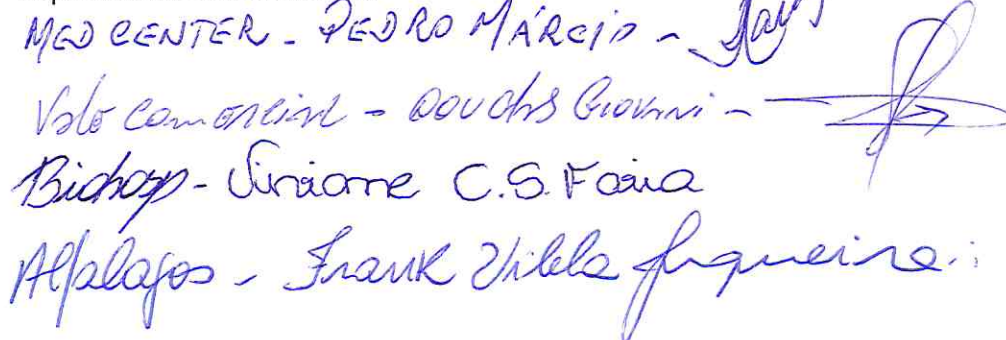 MED CENTER - PEDRO MÁRCIO -
Vale Comercial - Douglas Giovanni -
Biohosp - Viviane C.S. Faria
Alfalagos - Frank Vilela